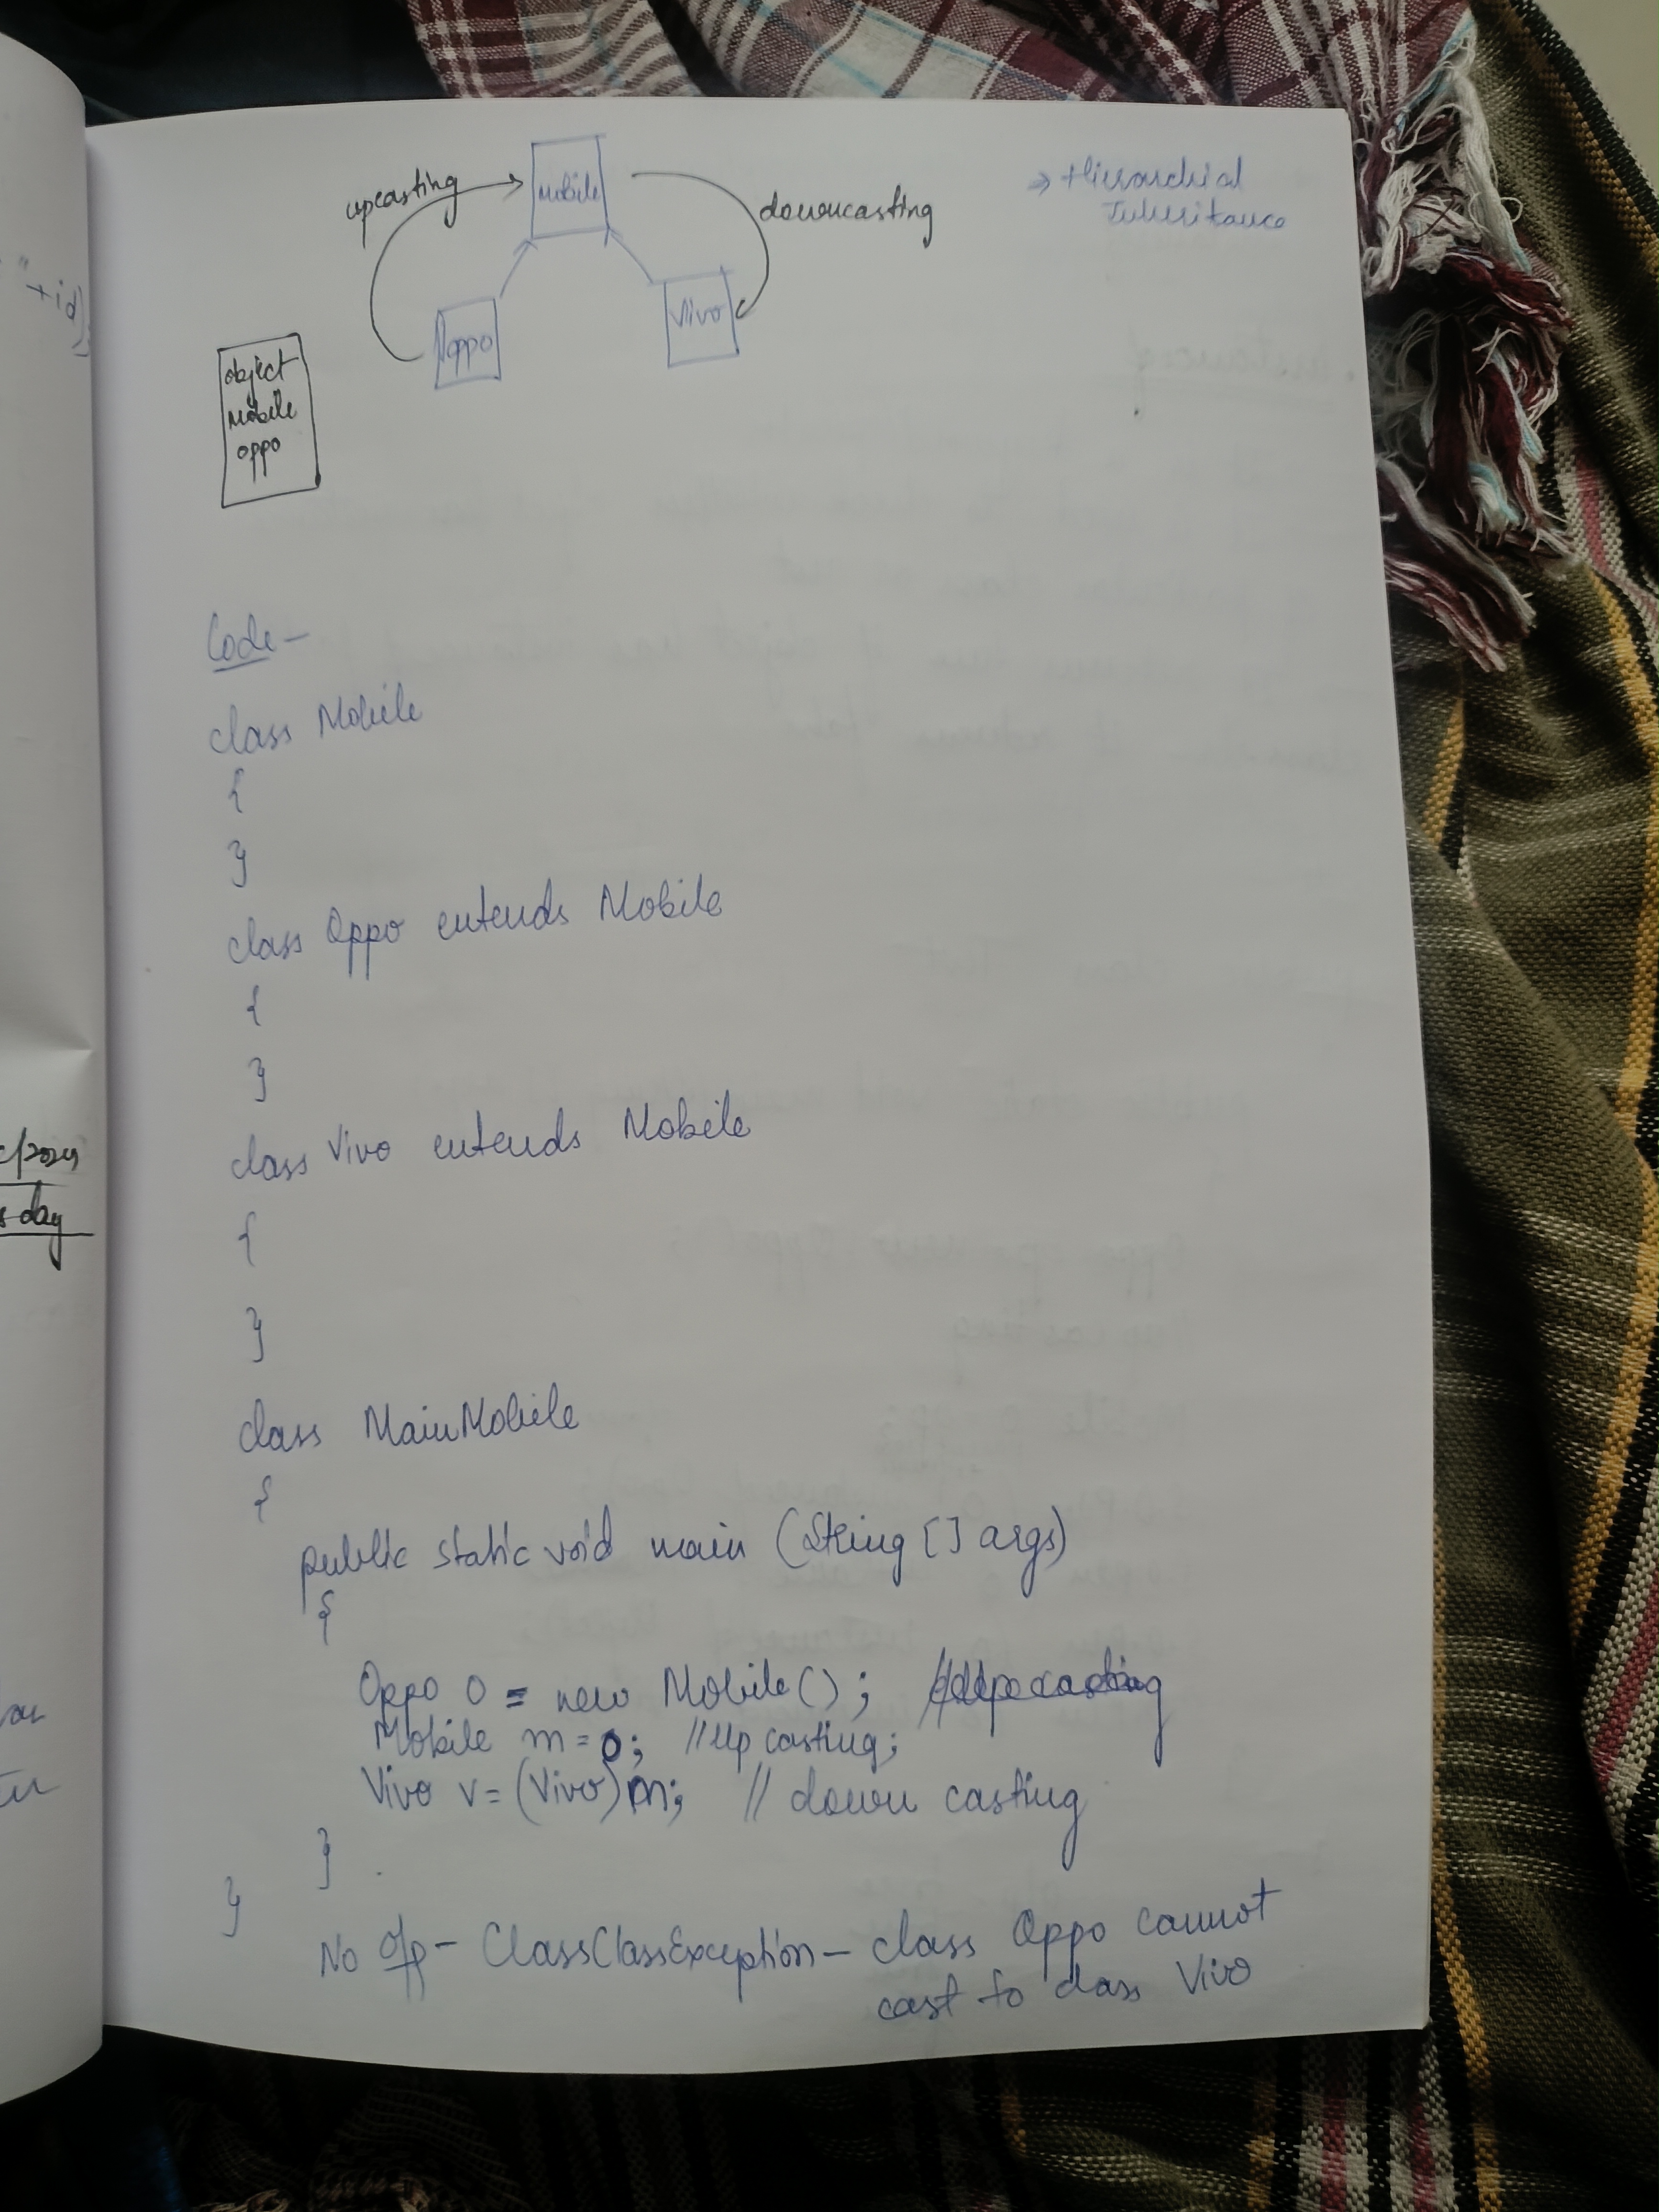 upcasting
mobile
downcasting
→ Hierarchial
Inheritance
oppo
Vivo
object
Mobile
oppo
"+id);
Code-
class Mobile
{
}
class Oppo extends Mobile
{
}
class Vivo extends Mobile
{
}
class MainMobile
{
public static void main (String [] args)
{
Oppo o = new Mobile();
Mobile m = o; //Up casting;
Vivo v = (Vivo)m; // down casting
}
}
No o/p - ClassClassException - class Oppo cannot
cast to class Vivo
/2024
day